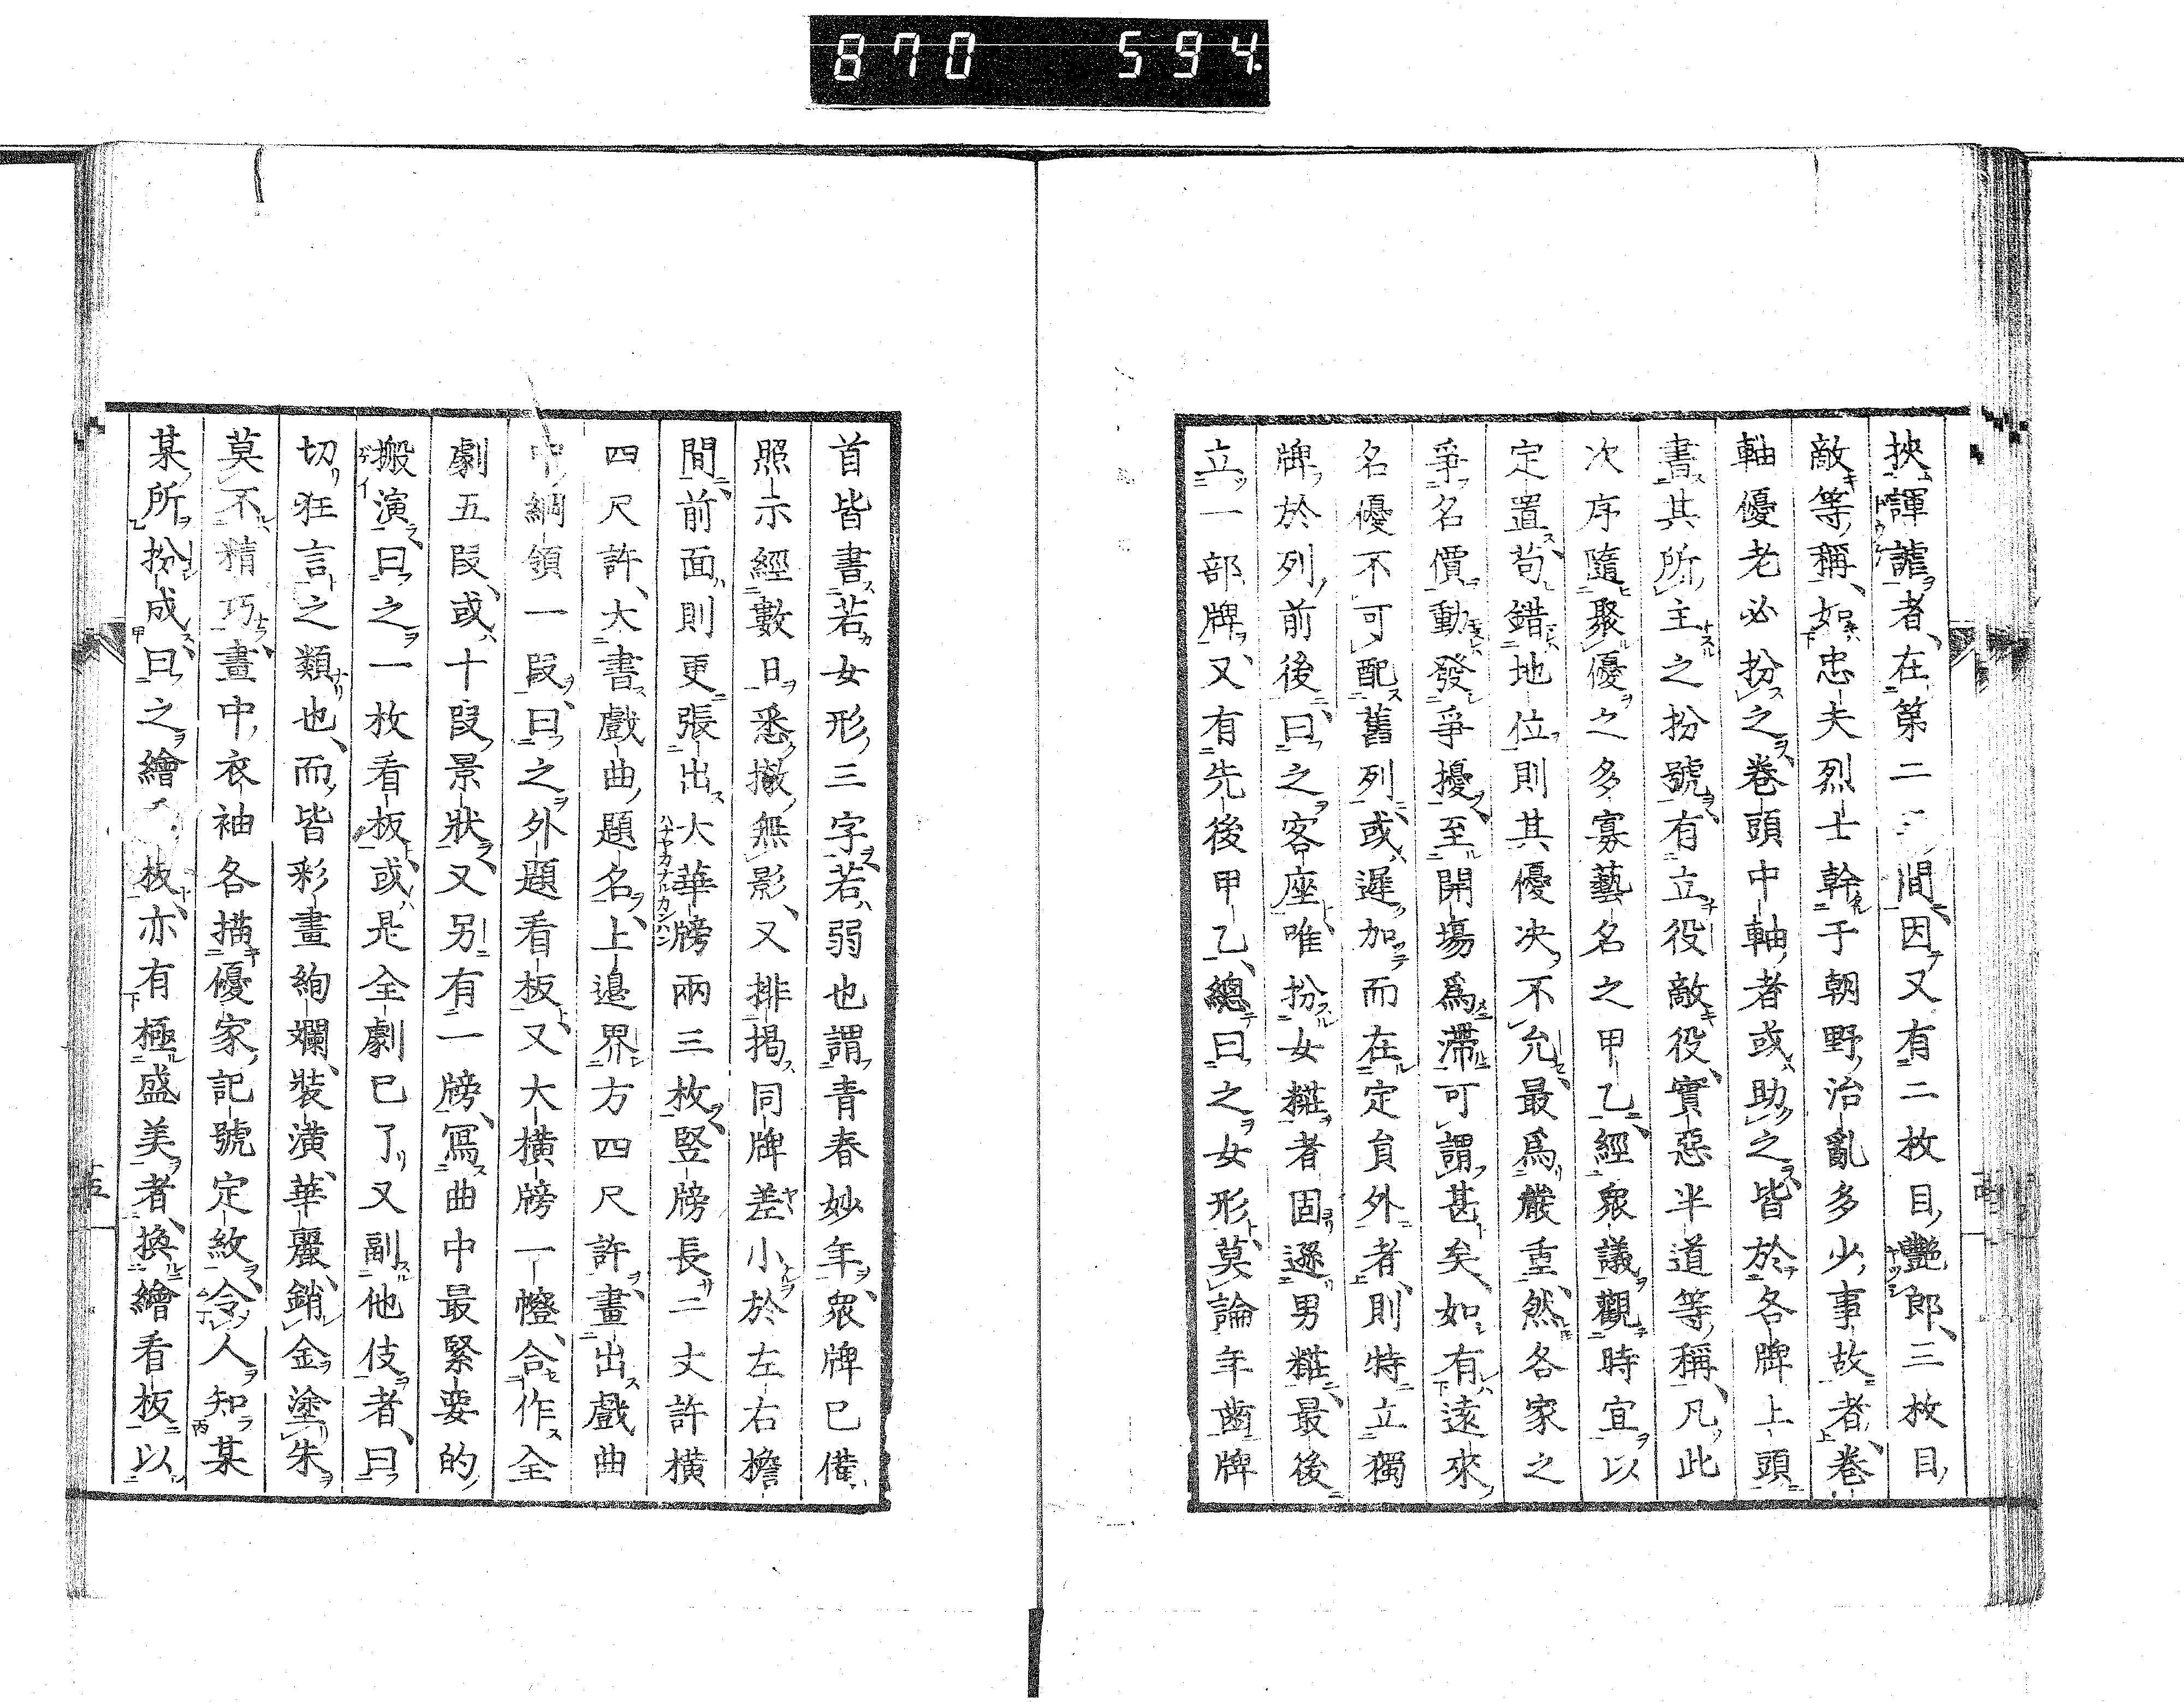 870 594
挾諢謔者、在第二三間、因又有二枚目、艷郎、三枚目、
敵等稱、如忠夫烈士幹于朝野、治亂多少、事故者、卷
軸優老必扮之、卷頭中軸者或助之、皆於各牌上頭
書其所主之扮號、有立役敵役、實惡半道等稱、凡此
次序隨聚優之多寡藝名之甲乙、經衆議觀時宜以
定置、苟錯地位則其優決不允、最爲嚴重、然各家之
爭名價動發爭擾、至開場爲滯可謂甚矣、如有遠來
名優不可配舊列、或遲加而在定員外者、則特立獨
牌於列前後、曰之客座、唯扮女糚者固遜男糚、最後
立一部牌、又有先後甲乙、總曰之女形、莫論年齒牌
首皆書若女形三字、若弱也謂青春妙年、衆牌已備、
照示經數日悉撤無影、又排揭同牌差小於左右檐
間、前面則更張出大華牓兩三枚、竪牓長二丈許橫
四尺許、大書戲曲題名、上邊界方四尺許、畫出戲曲
中綱領一段、曰之外題看板、又大橫牓一幢、合作全
劇五段或十段景狀、又另有一牓、寫曲中最緊要的
搬演、曰之一枚看板、或是全劇已了又副他伎者、曰
切狂言之類也、而皆彩畫絢爛、裝潢華麗、銷金塗朱
莫不精巧、畫中衣袖各描優家記號定紋、令人知某
某所扮成、曰之繪板、亦有極盛美者、換繪看板以